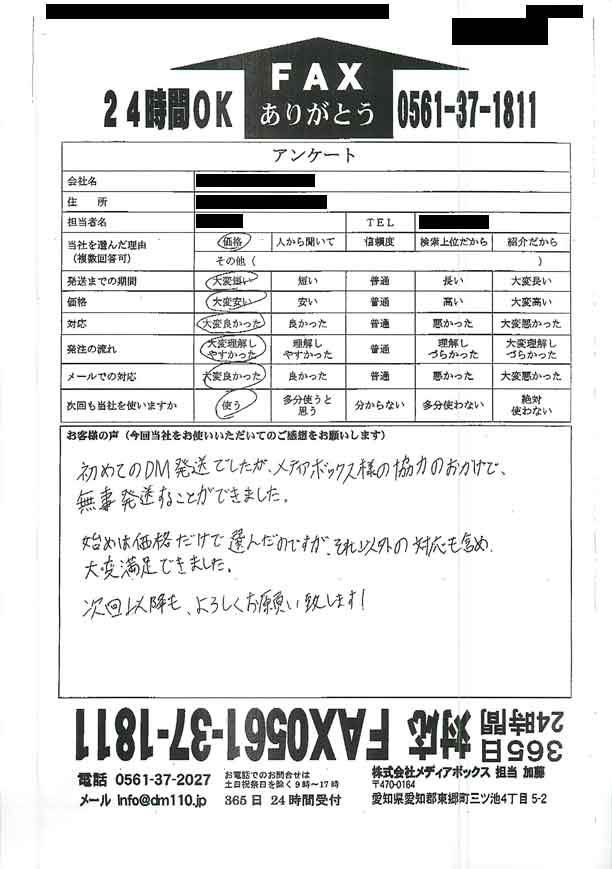 FAX
ありがとう
24時間OK
0561-37-1811
アンケート
会社名
住　所
担当者名 TEL
当社を選んだ理由
（複数回答可）
価格 人から聞いて 信頼度 検索上位だから 紹介だから
その他（ ）
発送までの期間 大変短い 短い 普通 長い 大変長い
価格 大変安い 安い 普通 高い 大変高い
対応 大変良かった 良かった 普通 悪かった 大変悪かった
発注の流れ 大変理解しやすかった 理解しやすかった 普通 理解しづらかった 大変理解しづらかった
メールでの対応 大変良かった 良かった 普通 悪かった 大変悪かった
次回も当社を使いますか 使う 多分使うと思う 分からない 多分使わない 絶対使わない
お客様の声（今回当社をお使いいただいてのご感想をお願いします）
初めてのDM発送でしたが、メディアボックス様の協力のおかげで、
無事発送することができました。
始めは価格だけで選んだのですが、それ以外の対応も含め、
大変満足できました。
次回以降も、よろしくお願い致します！
365日
24時間 対応 FAX0561-37-1811
電話 0561-37-2027
メール Info@dm110.jp
お電話でのお問合せは
土日祝祭日を除く9時～17時
365日 24時間受付
株式会社メディアボックス 担当 加藤
〒470-0164
愛知県愛知郡東郷町三ツ池4丁目5-2